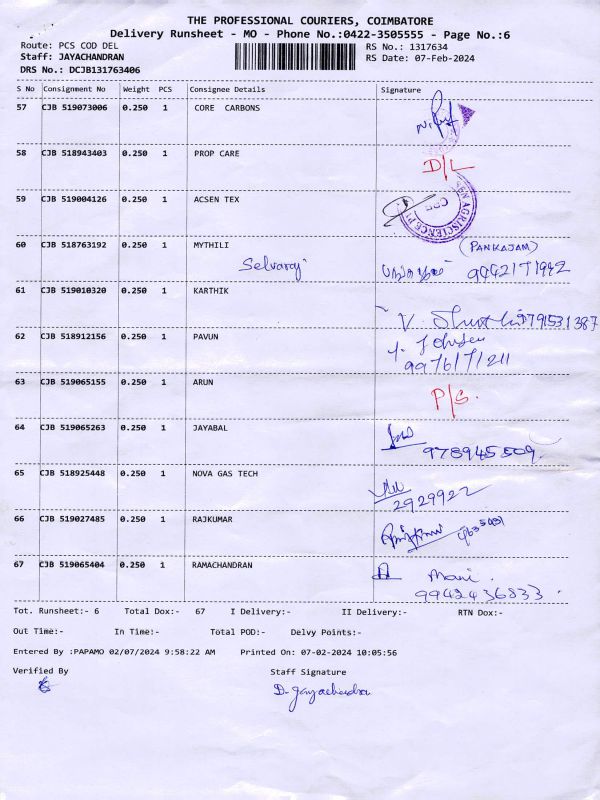 THE PROFESSIONAL COURIERS, COIMBATORE
Delivery Runsheet - MO - Phone No.:0422-3505555 - Page No.:6
Route: PCS COD DEL
RS No.: 1317634
Staff: JAYACHANDRAN
RS Date: 07-Feb-2024
DRS No.: DCJB131763406
S No Consignment No Weight PCS Consignee Details Signature
57 CJB 519073006 0.250 1 CORE CARBONS
58 CJB 518943403 0.250 1 PROP CARE D/L
59 CJB 519004126 0.250 1 ACSEN TEX
60 CJB 518763192 0.250 1 MYTHILI (PANKAJAM)
Selvaraj 9442171942
61 CJB 519010320 0.250 1 KARTHIK
V. 9791531387
62 CJB 518912156 0.250 1 PAVUN
9976171211
63 CJB 519065155 0.250 1 ARUN P/S.
64 CJB 519065263 0.250 1 JAYABAL
978945509.
65 CJB 518925448 0.250 1 NOVA GAS TECH
2929922
66 CJB 519027485 0.250 1 RAJKUMAR
67 CJB 519065404 0.250 1 RAMACHANDRAN Mani.
9942436833
Tot. Runsheet:- 6 Total Dox:- 67 I Delivery:- II Delivery:- RTN Dox:-
Out Time:- In Time:- Total POD:- Delvy Points:-
Entered By :PAPAMO 02/07/2024 9:58:22 AM Printed On: 07-02-2024 10:05:56
Verified By Staff Signature
D. Jayachandra